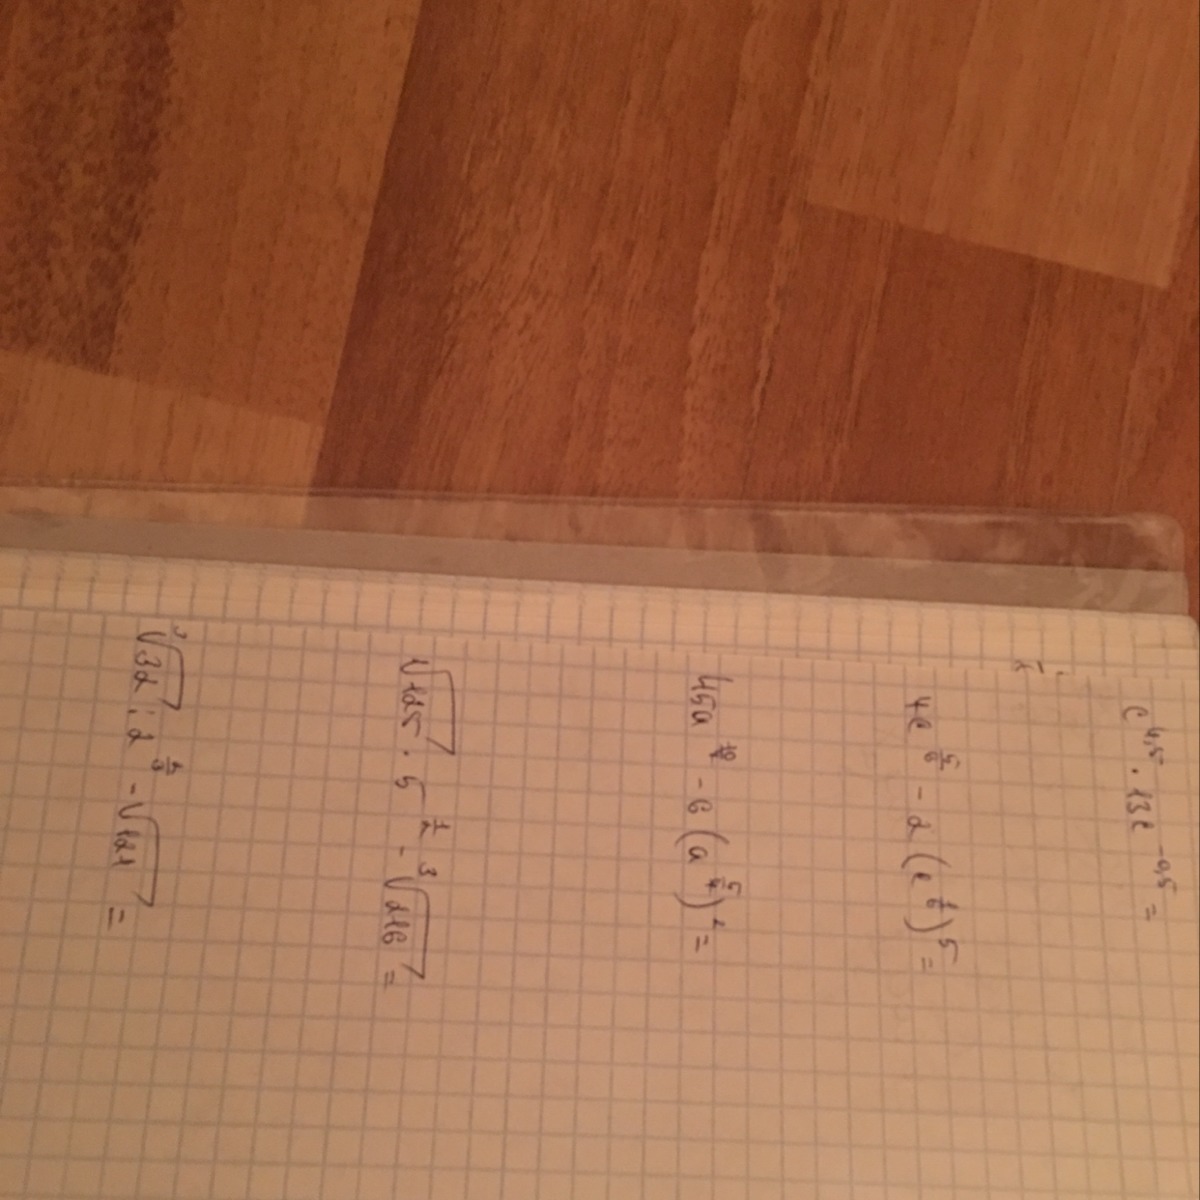 c^4,5 · 13c^-0,5 =
4c^(5/6) - 2(c^(1/6))^5 =
45a - 6(a^(5/4))^2 =
√125 · 5^(1/2) - ³√216 =
³√32 : 2 - √121 =